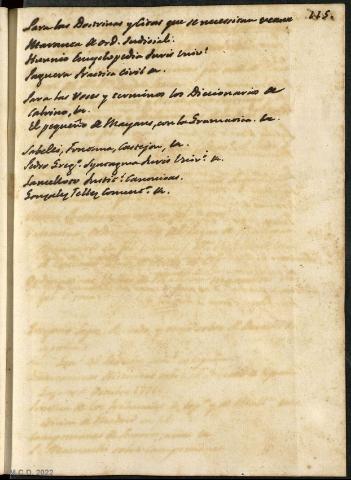 115.
Para las Doctrinas y Citas que se necesitan veanse
Maranta de ord. Judicial.
Hunnio Encyclopedia Juris Univ.
Paz Practica Civil &a.
Para las Voses y terminos los Diccionario de
Calvino, &a.
El pequeño de Mayans, con la Gramatica. &a
Sabelli, Fontana, Castejon, &a.
Pedro Greg.º Syntagma Juris Univ.i &a.
Lancelloto Instit.s Canonicas.
Gonzalez Tellez Coment.s &a.
M.C.D. 2022